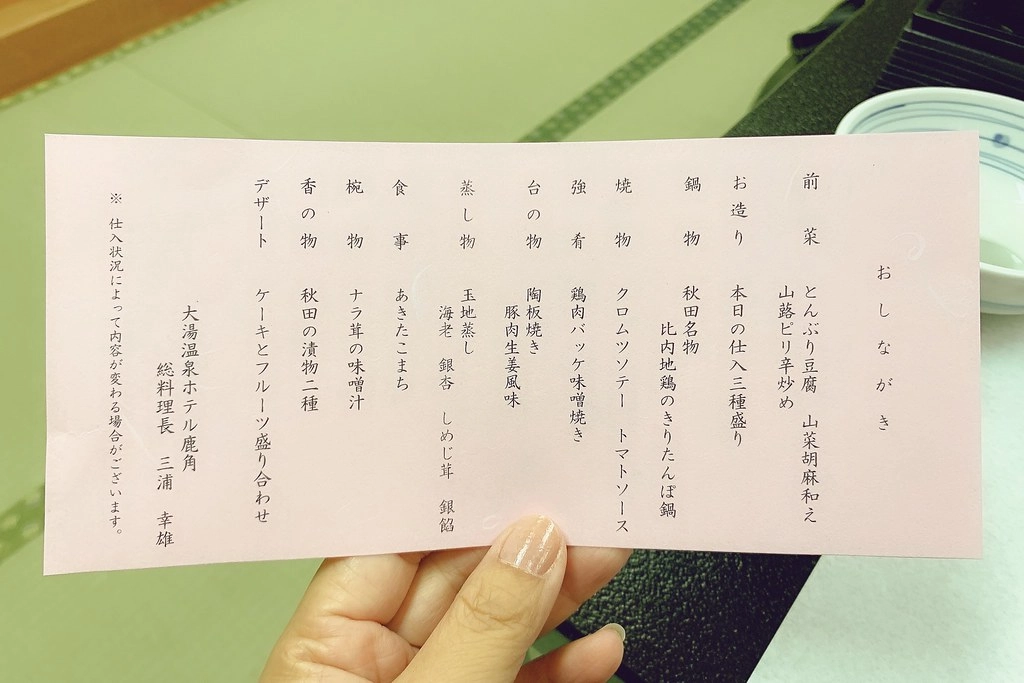 おしながき
前菜　とんぶり豆腐　山菜胡麻和え
山蕗ピリ辛炒め
お造り　本日の仕入三種盛り
鍋物　秋田名物
比内地鶏のきりたんぽ鍋
焼物　クロムツソテー　トマトソース
強肴　鶏肉バッケ味噌焼き
台の物　陶板焼き
豚肉生姜風味
蒸し物　玉地蒸し
海老　銀杏　しめじ茸　銀餡
食事　あきたこまち
椀物　ナラ茸の味噌汁
香の物　秋田の漬物二種
デザート　ケーキとフルーツ盛り合わせ
大湯温泉ホテル鹿角
総料理長　三浦　幸雄
※ 仕入状況によって内容が変わる場合がございます。